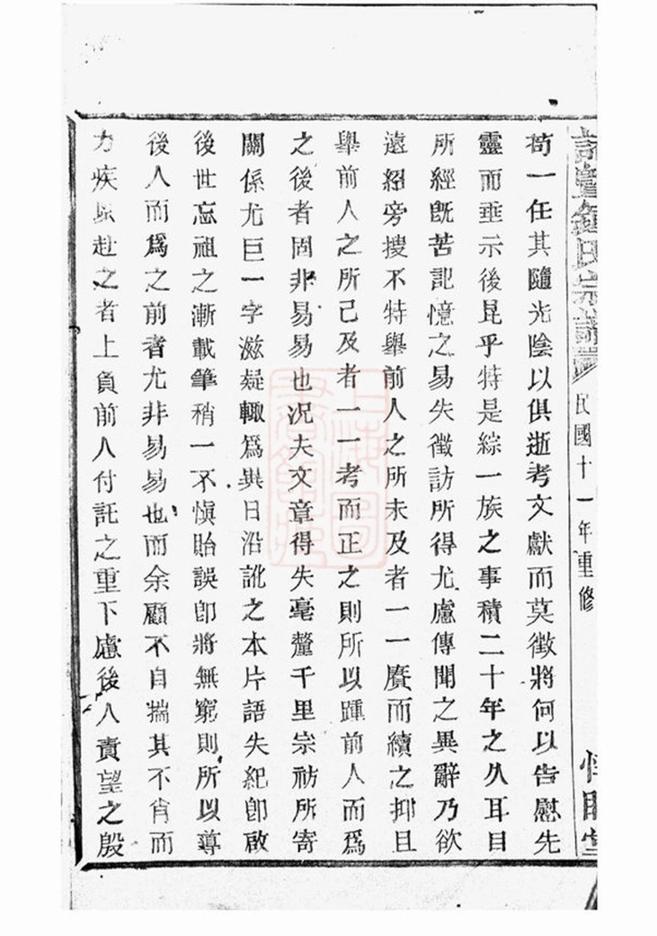 民國十一年重修
苟一任其隨光陰以俱逝考文獻而莫徵將何以告慰先
靈而垂示後昆乎特是綜一族之事積二十年之久耳目
所經既苦記憶之易失徵訪所得尤慮傳聞之異辭乃欲
遠紹旁搜不特舉前人之所未及者一一賡而續之抑且
舉前人之所已及者一一考而正之則所以踵前人而爲
之後者固非易易也況夫文章得失毫釐千里宗祊所寄
關係尤巨一字滋疑輒爲異日沿訛之本片語失紀卽啟
後世忘祖之漸載筆稍一不愼貽誤卽將無窮則所以導
後人而爲之前者尤非易易也而余顧不自揣其不肖而
力疾以赴之者上負前人付託之重下慮後人責望之殷
上海圖書館藏